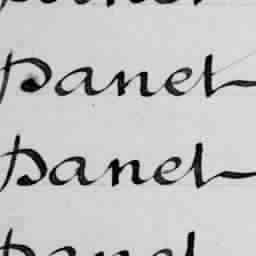 Panel
Panel